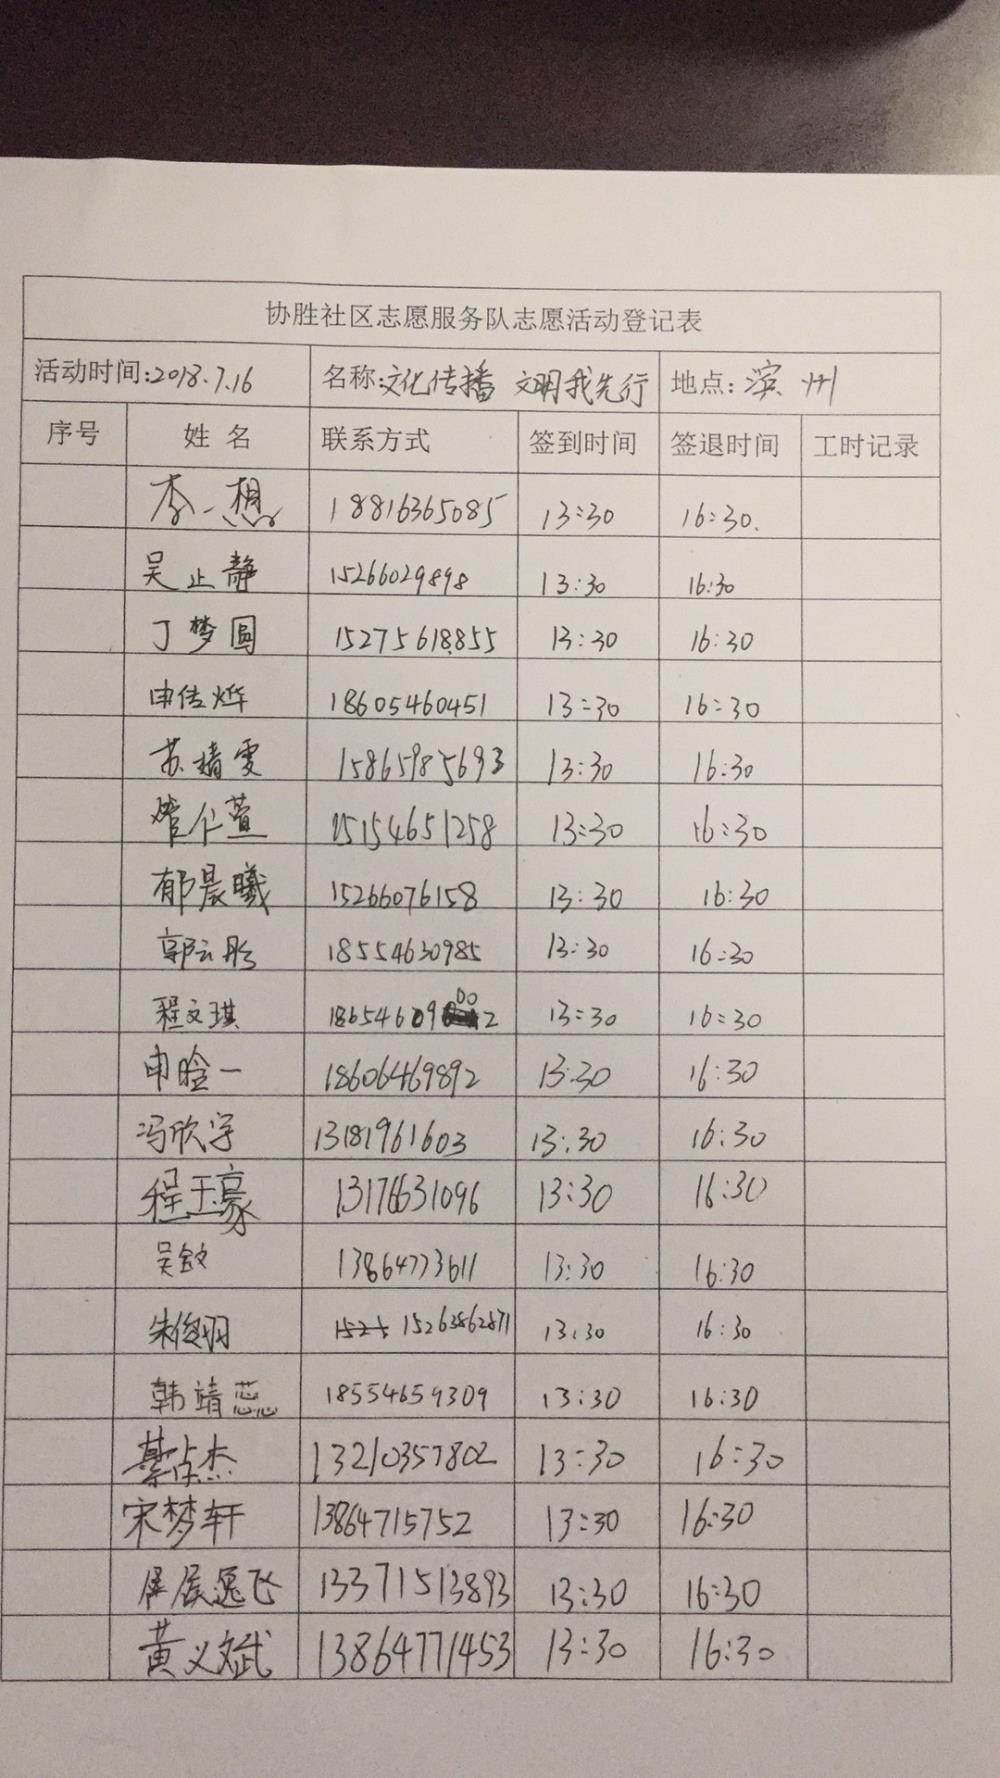 协胜社区志愿服务队志愿活动登记表
活动时间:2018.7.16 名称:文化传播 文明我先行 地点:滨州
序号 姓名 联系方式 签到时间 签退时间 工时记录
李一想 18816365085 13:30 16:30.
吴止静 15266029898 13:30 16:30
丁梦圆 15275618855 13:30 16:30
申传烨 18605460451 13:30 16:30
苏靖雯 15865985693 13:30 16:30
15154651258 13:30 16:30
郁晨曦 15266076158 13:30 16:30
郭云彤 18554630985 13:30 16:30
程文琪 18654609002 13:30 16:30
申晗一 18606469892 13:30 16:30
冯欣宇 13181961603 13:30 16:30
程玉豪 13176631096 13:30 16:30
吴敏 13864773611 13:30 16:30
朱俊羽 15263862871 13:30 16:30
韩靖蕊 18554659309 13:30 16:30
綦卓杰 13210357802 13:30 16:30
宋梦轩 13864715752 13:30 16:30
逸飞 13371513893 13:30 16:30
黄义斌 13864771453 13:30 16:30